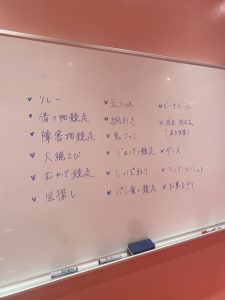 ♥ リレー
♥ 借り物競走
♥ 障害物競走
♥ 大縄とび
♥ おかず競走
♥ 宝探し
♥ 玉入れ
♥ 綱引き
♥ 鬼ごっこ
♥ デカパン競走
♥ しっぽ取り
♥ パン食い競走
♥ ビーチボール
♥
♥ ダンス
♥
♥ お菓子釣り